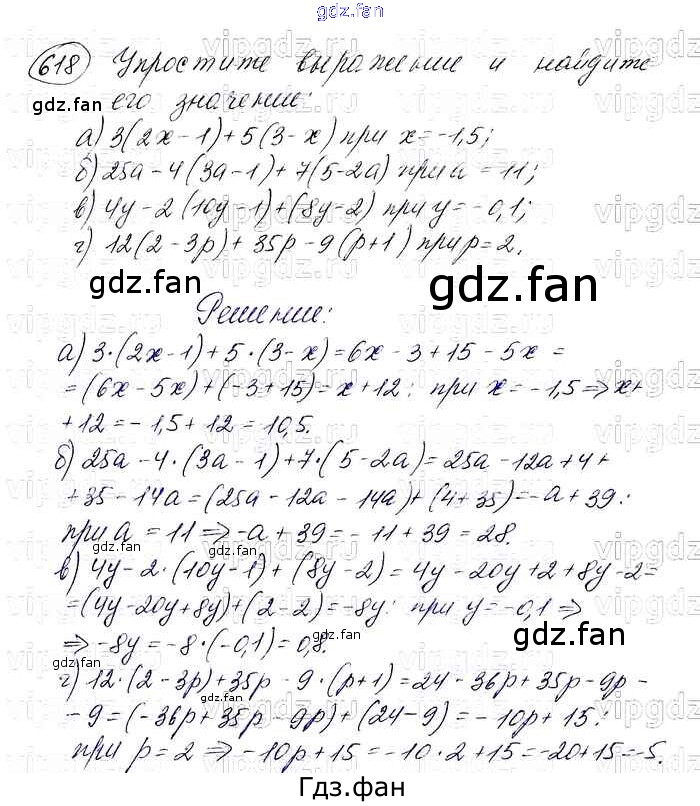 gdz.fan
618 Упростите выражение и найдите
его значение:
а) 3(2x-1)+5(3-x) при x=-1,5;
б) 25a-4(3a-1)+7(5-2a) при a=11;
в) 4y-2(10y-1)+(8y-2) при y=-0,1;
г) 12(2-3p)+35p-9(p+1) при p=2.
Решение:
а) 3·(2x-1)+5·(3-x)=6x-3+15-5x=
=(6x-5x)+(-3+15)=x+12: при x=-1,5⇒x+
+12=-1,5+12=10,5.
б) 25a-4·(3a-1)+7·(5-2a)=25a-12a+4+
+35-14a=(25a-12a-14a)+(4+35)=-a+39:
при a=11⇒-a+39=-11+39=28.
в) 4y-2·(10y-1)+(8y-2)=4y-20y+2+8y-2=
=(4y-20y+8y)+(2-2)=-8y: при y=-0,1⇒
⇒-8y=-8·(-0,1)=0,8.
г) 12·(2-3p)+35p-9·(p+1)=24-36p+35p-9p-
-9=(-36p+35p-9p)+(24-9)=-10p+15:
при p=2⇒-10p+15=-10·2+15=-20+15=-5.
Гдз.фан